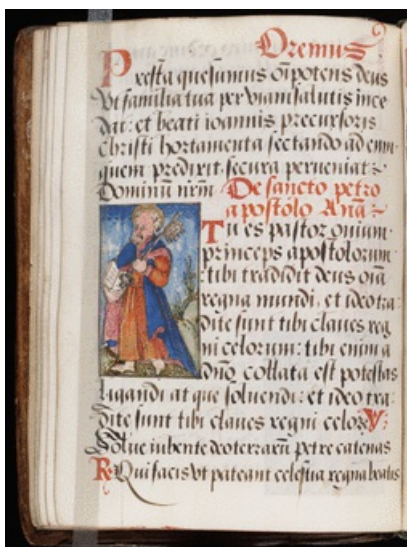 Oremus
Presta quesumus oīpotens deus
Vt familia tua per viam salutis ince
dat: et beati ioannis precursoris
Christi hortamenta sectando ad eum
quem predixit. secura perueniat
Dominū nrm̄ De sancto petro
apostolo Anā
Tu es pastor ouium
princeps apostolorum
tibi tradidit deus oīa
regna mundi. et ideo tra
dite sunt tibi claues reg
ni celorum: tibi enim a
dn̄o collata est potestas
ligandi atque soluendi: et ideo tra
dite sunt tibi claues regni celorꝝ V
Solue iubente deo terrarū petre catenas
R Qui facis vt pateant celestia regna beatis